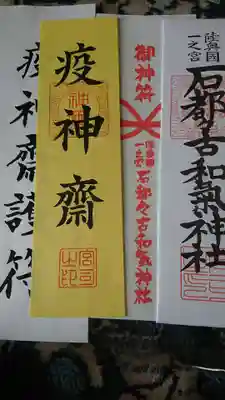 陸奥國
一之宮
石都古和氣神社
御神符
一之宮
石都々古和氣神社
疫神齋
宮司之印
疫神齋護符